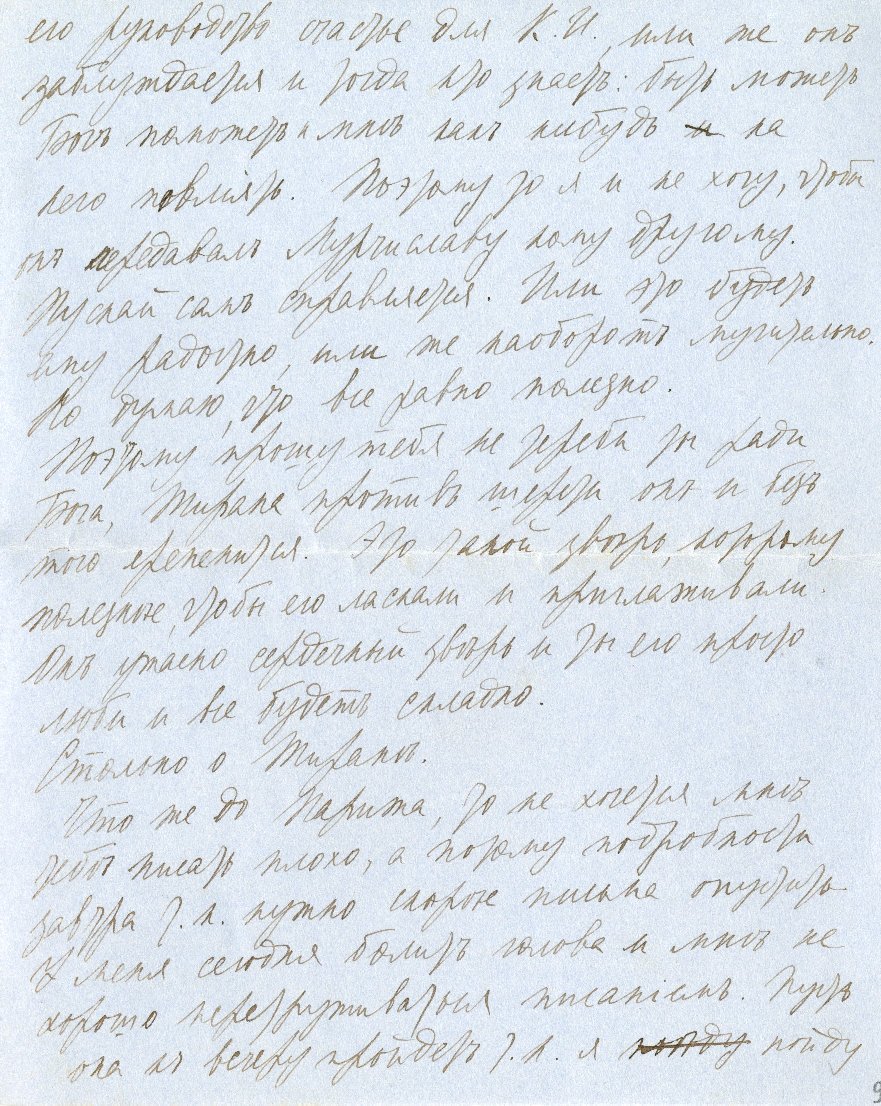 его руководство счастье для К.И. или же онъ
заблуждается и тогда кто знаетъ: быть можетъ
Богъ поможетъ и мнѣ какъ нибудь на
него повліять. Поэтому то я и не хочу, чтобы
онъ передавалъ Мурчиславу кому другому.
Пускай самъ справляется. Или это будетъ
ему радостно, или же наоборотъ мучительно.
Но думаю, что все равно полезно.
Поэтому прошу тебя не тереби ты ради
Бога, Тирана противъ шерсти онъ и безъ
того ерепенится. Это такой звѣрь, которому
полезнѣе, чтобы его ласкали и приглаживали.
Онъ ужасно сердечный звѣрь и ты его просто
люби и все будетъ складно.
Столько о Тиранѣ.
Что же до Парижа, то не хочется мнѣ
тебѣ писать плохо, а потому подробности
завтра т.к. нужно скорѣе письма опустить
У меня сегодня болитъ голова и мнѣ не
хорошо перетруживаться писаніемъ. Пусть
она къ вечеру пройдетъ т.к. я пойду
9